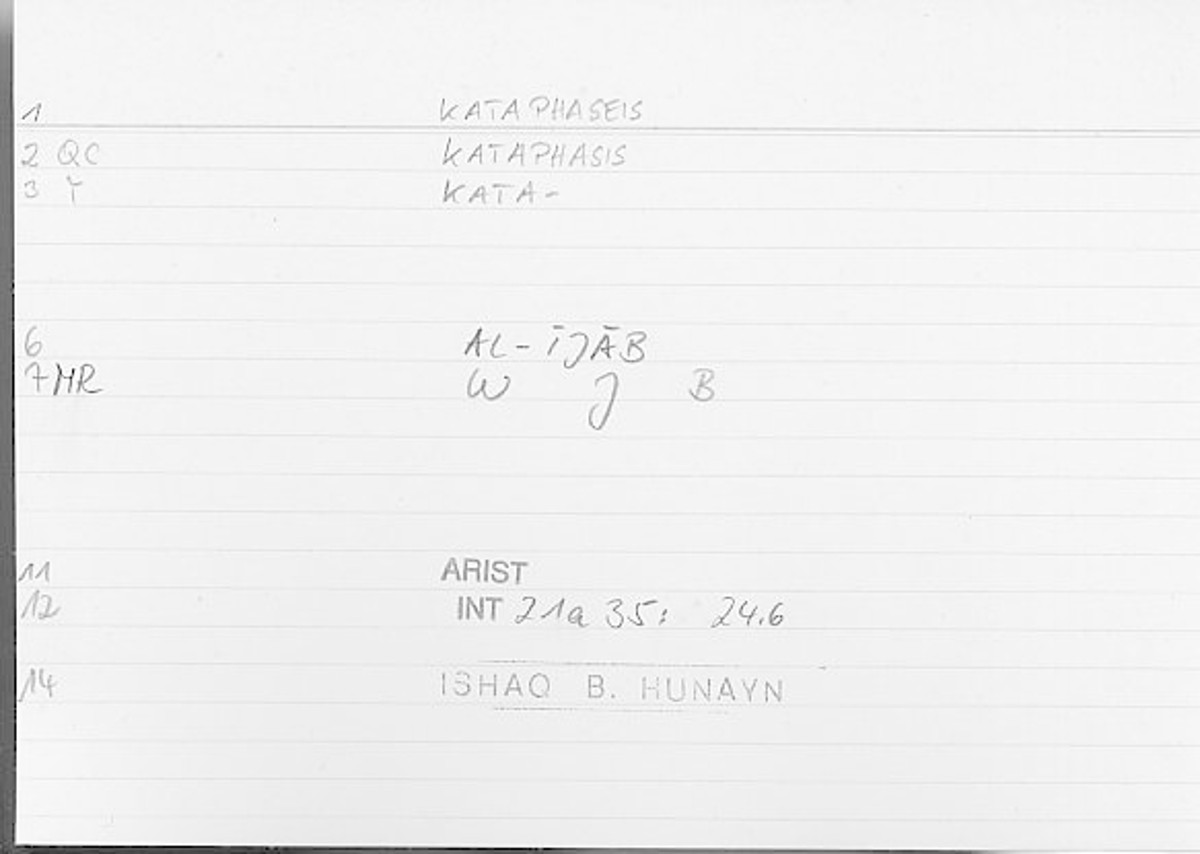 1 KATAPHASEIS
2 QC KATAPHASIS
3 T KATA-
6 AL-ĪJĀB
7 MR W J B
11 ARIST
12 INT 21a 35: 24.6
14 ISHAQ B. HUNAYN